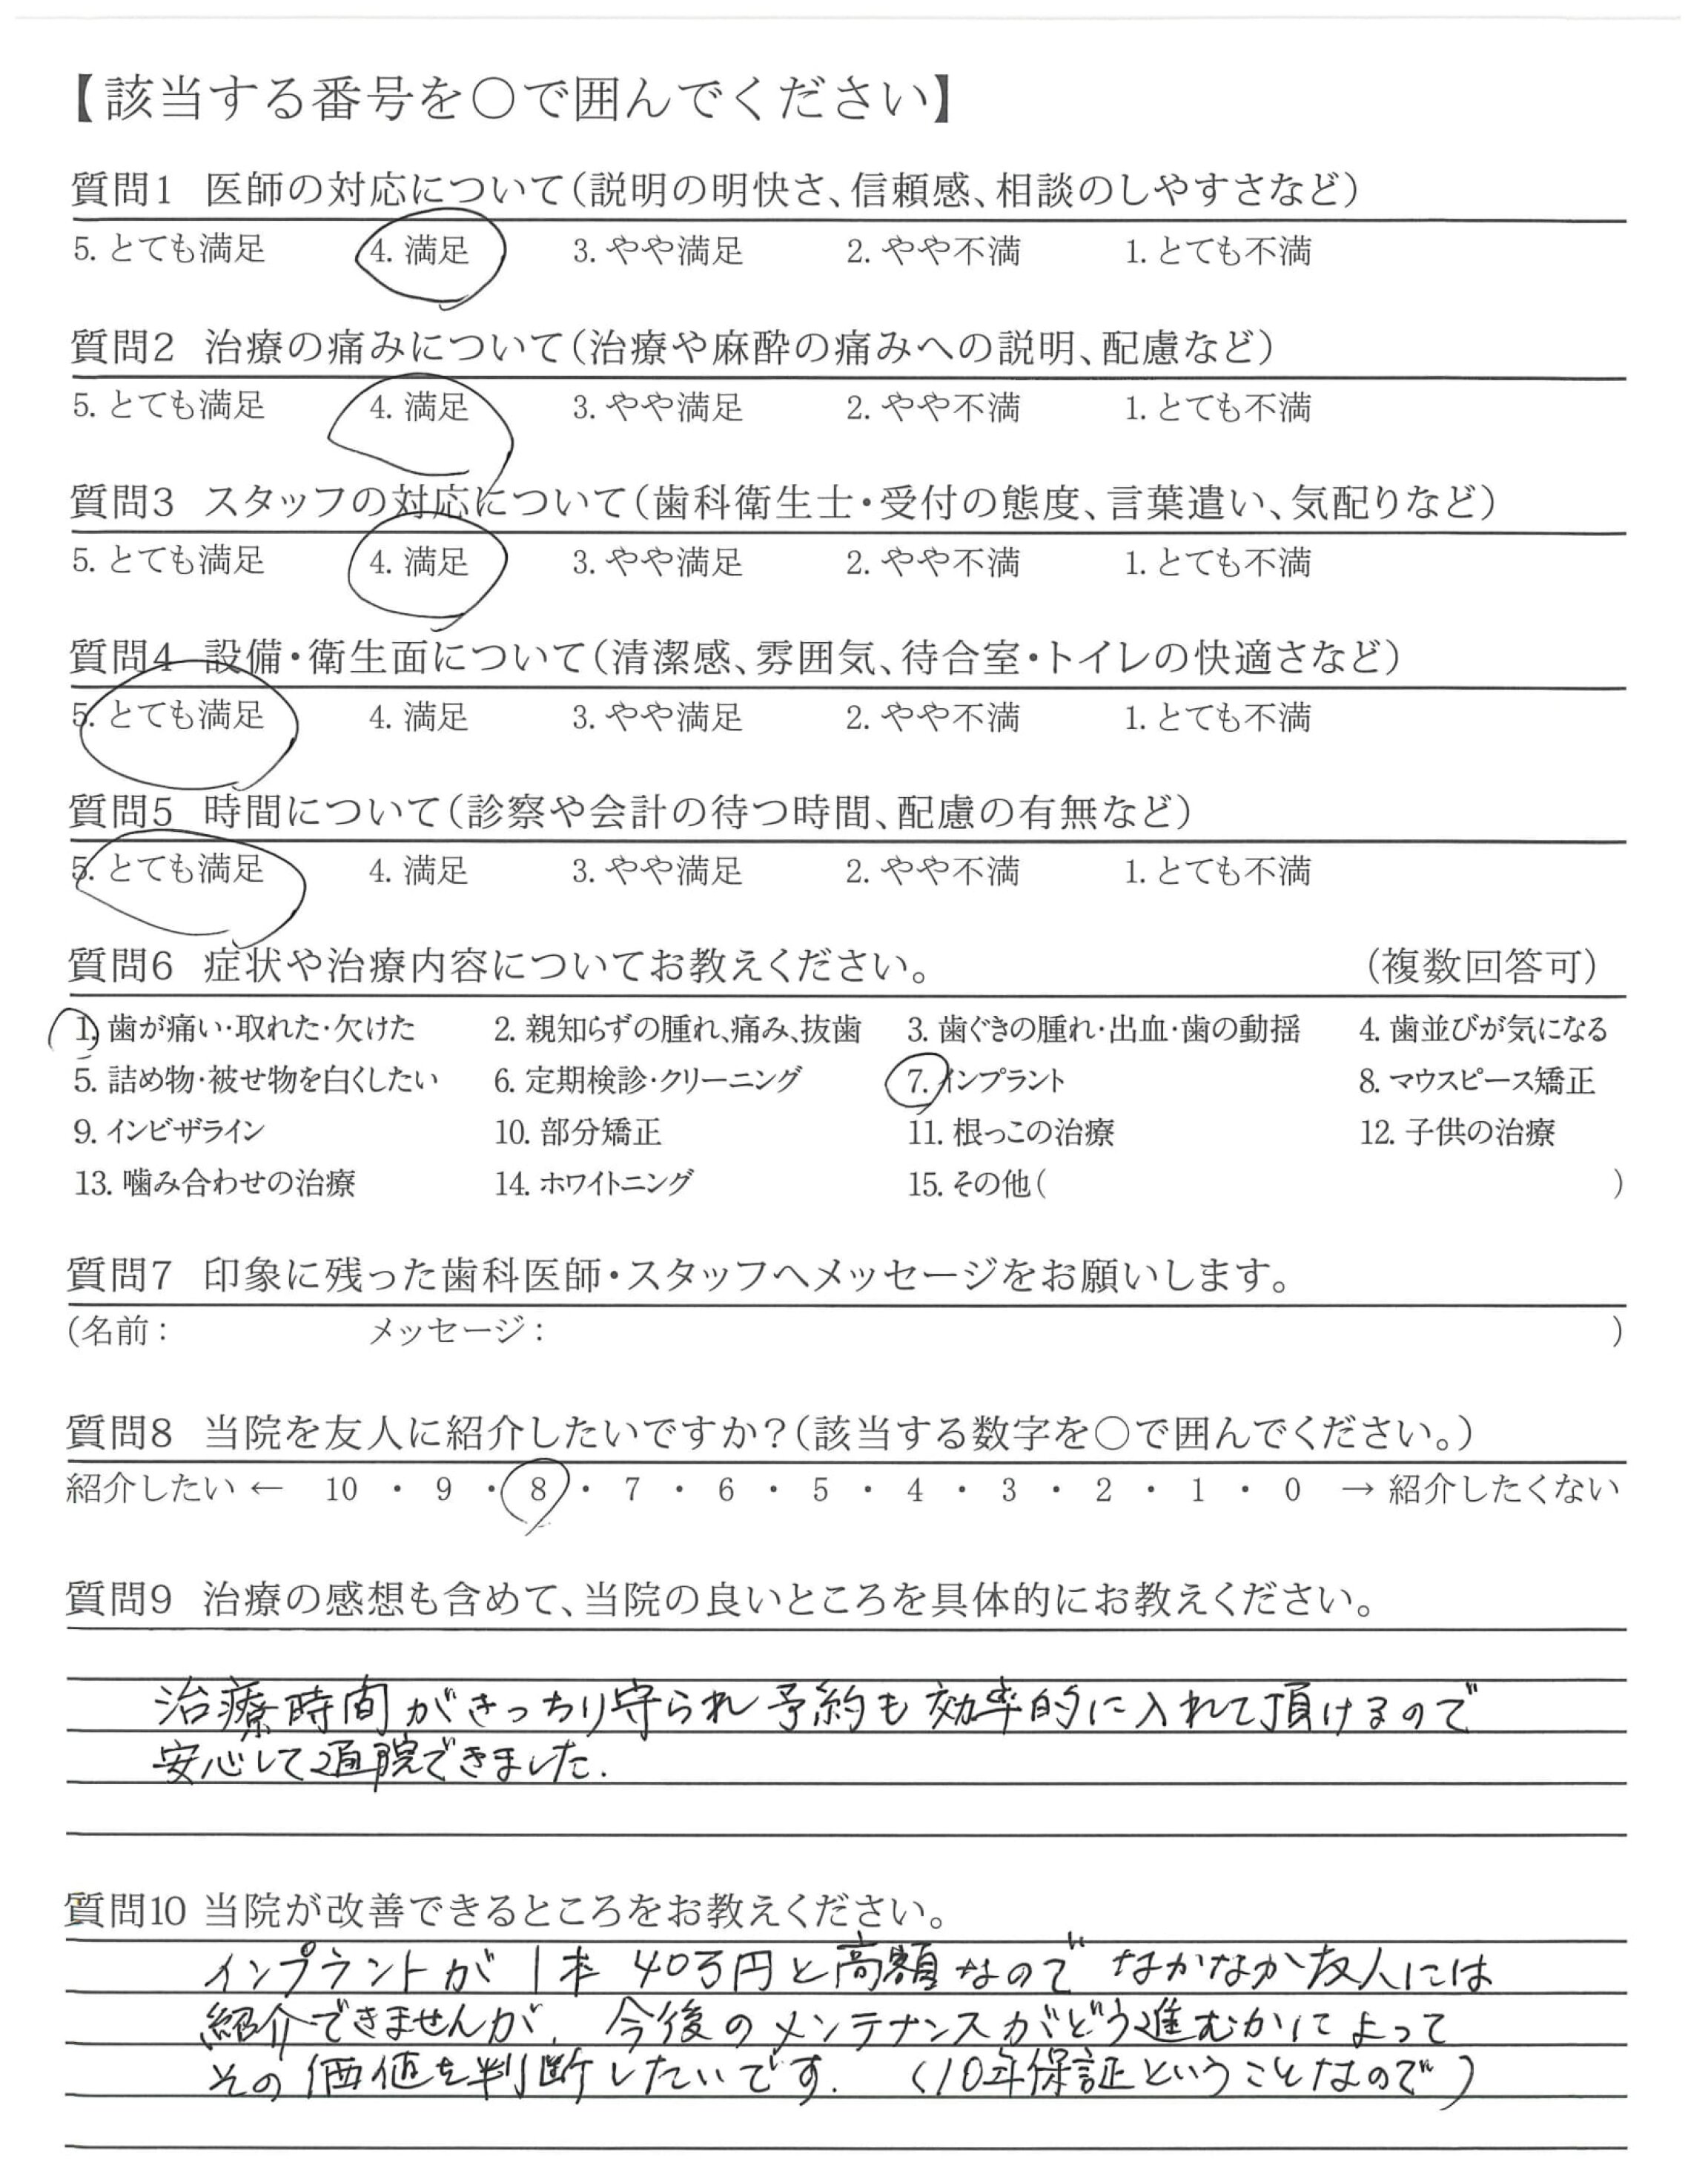 【該当する番号を○で囲んでください】
質問1 医師の対応について(説明の明快さ、信頼感、相談のしやすさなど)
5. とても満足 4. 満足 3. やや満足 2. やや不満 1. とても不満
質問2 治療の痛みについて(治療や麻酔の痛みへの説明、配慮など)
5. とても満足 4. 満足 3. やや満足 2. やや不満 1. とても不満
質問3 スタッフの対応について(歯科衛生士・受付の態度、言葉遣い、気配りなど)
5. とても満足 4. 満足 3. やや満足 2. やや不満 1. とても不満
質問4 設備・衛生面について(清潔感、雰囲気、待合室・トイレの快適さなど)
5. とても満足 4. 満足 3. やや満足 2. やや不満 1. とても不満
質問5 時間について(診察や会計の待つ時間、配慮の有無など)
5. とても満足 4. 満足 3. やや満足 2. やや不満 1. とても不満
質問6 症状や治療内容についてお教えください。 (複数回答可)
1. 歯が痛い・取れた・欠けた 2. 親知らずの腫れ、痛み、抜歯 3. 歯ぐきの腫れ・出血・歯の動揺 4. 歯並びが気になる
5. 詰め物・被せ物を白くしたい 6. 定期検診・クリーニング 7. インプラント 8. マウスピース矯正
9. インビザライン 10. 部分矯正 11. 根っこの治療 12. 子供の治療
13. 噛み合わせの治療 14. ホワイトニング 15. その他( )
質問7 印象に残った歯科医師・スタッフへメッセージをお願いします。
(名前: メッセージ: )
質問8 当院を友人に紹介したいですか?(該当する数字を○で囲んでください。)
紹介したい ← 10 ・ 9 ・ 8 ・ 7 ・ 6 ・ 5 ・ 4 ・ 3 ・ 2 ・ 1 ・ 0 → 紹介したくない
質問9 治療の感想も含めて、当院の良いところを具体的にお教えください。
治療時間がきっちり守られ予約も効率的に入れて頂けるので
安心して通院できました.
質問10 当院が改善できるところをお教えください。
インプラントが1本40万円と高額なのでなかなか友人には
紹介できませんが、今後のメンテナンスがどう進むかによって
その価値を判断したいです. (10年保証ということなので)